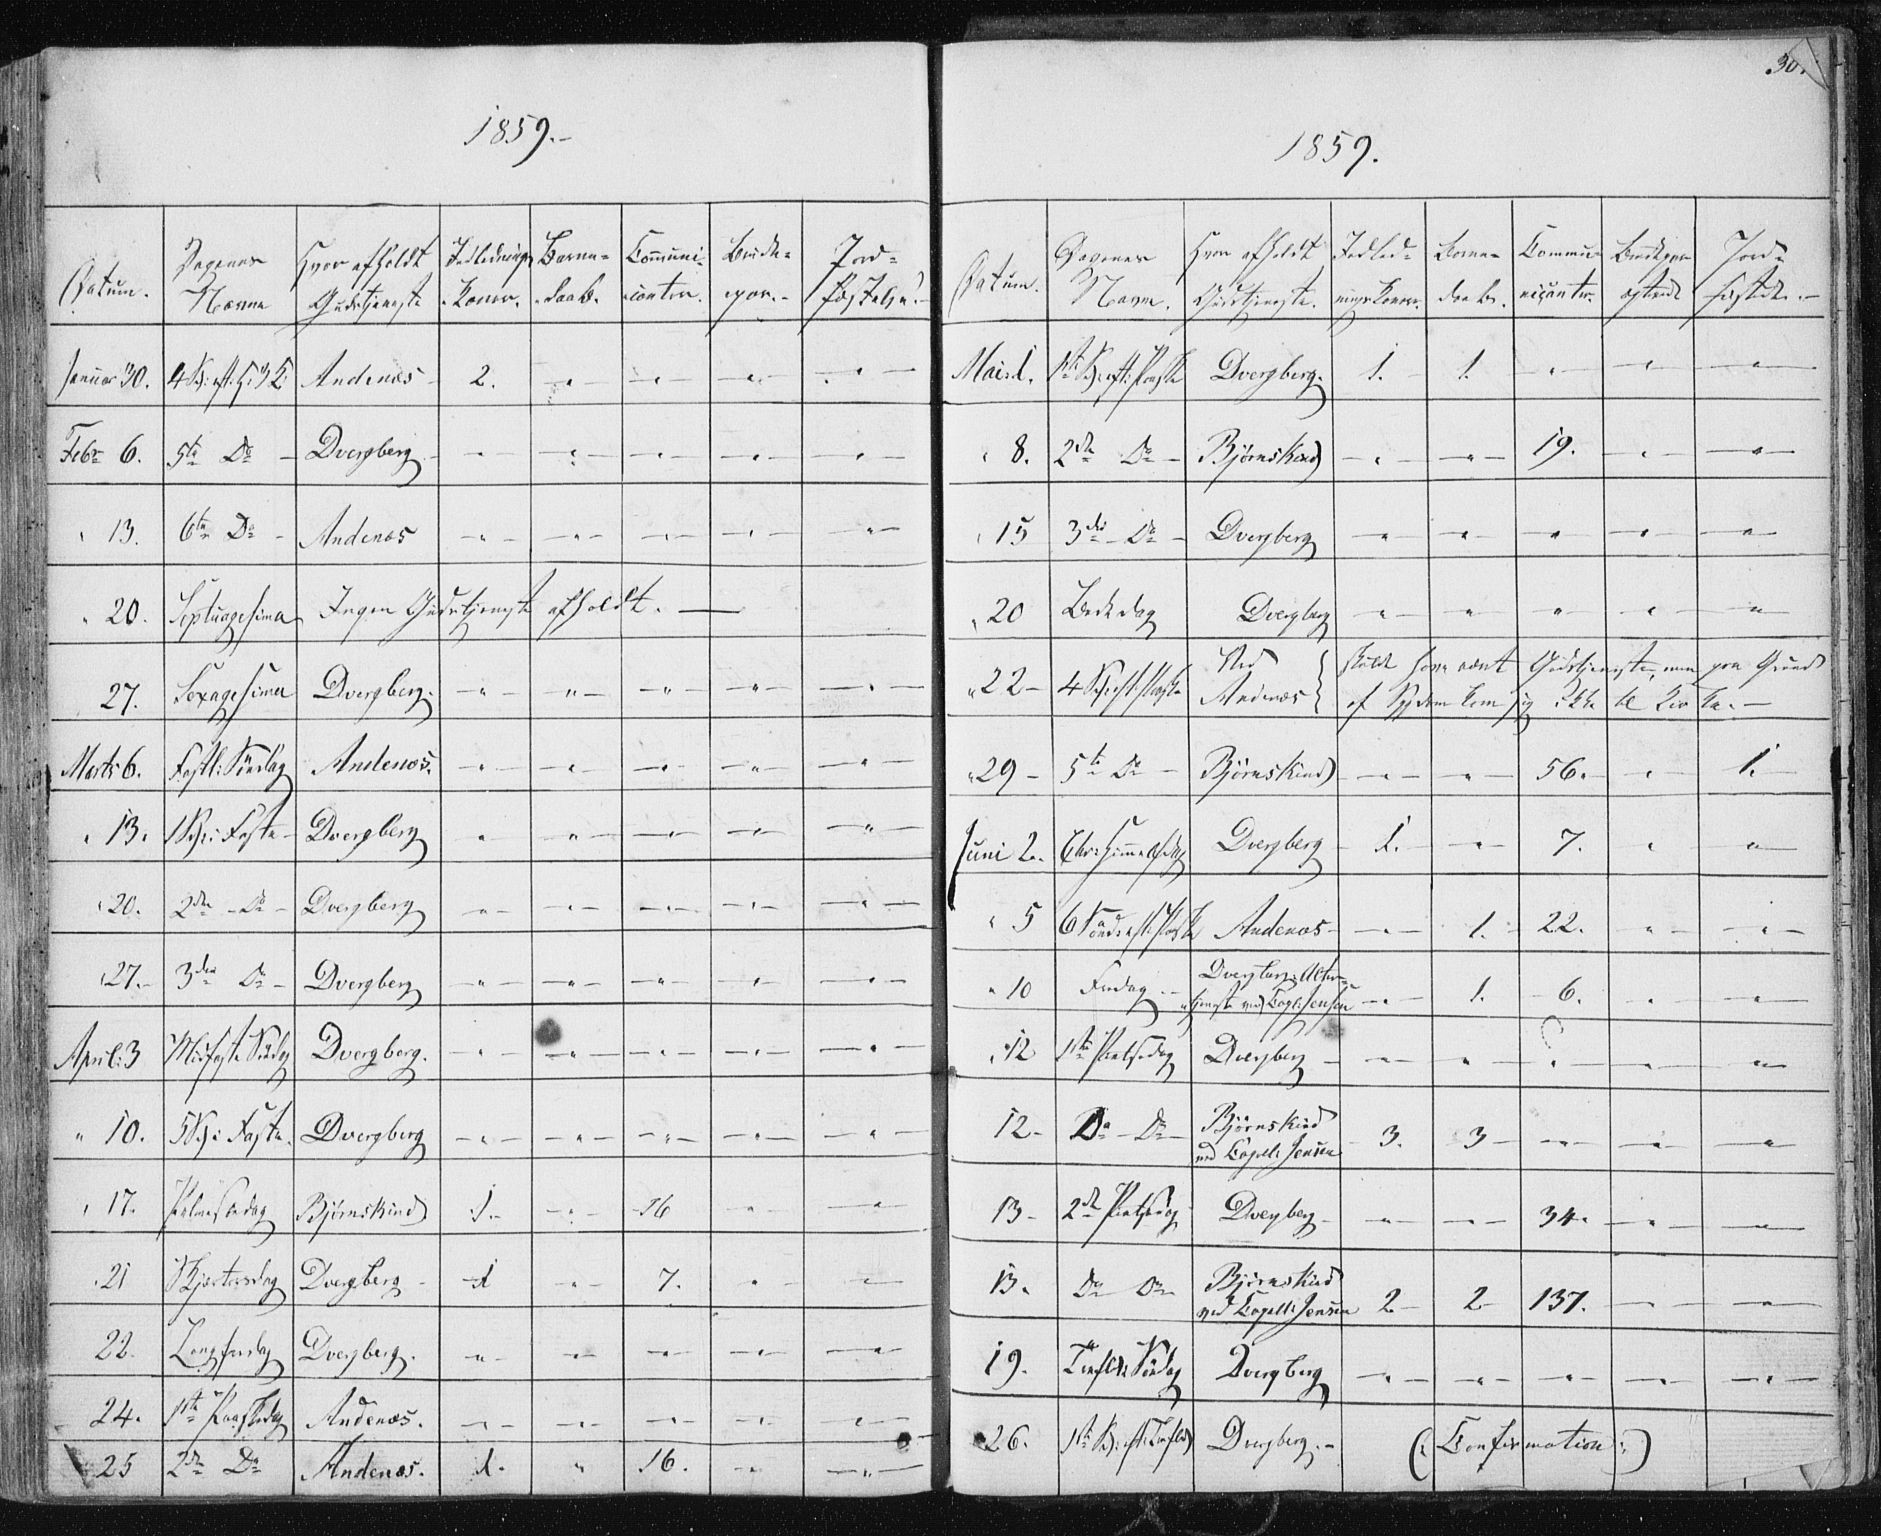 30.
1859.-
Datum. Dagenes Navne Hvor afholdt Gudstjeneste Indlednings Koner. Barne-daab. Communi-canter. Brude-par.- Jord-fæstelse.-
Januar 30. 4 S: eft: H: 3 K: Andenæs - 2. " " " " "
Febr 6. 5te Do - Dverberg - " - " - " - " - "
" 13. 6te Do - Andenæs - " - " - " - " - "
" 20. Septuagesima Ingen Gudstjeneste afholdt. —
27. Sexagesima Dverberg - " - " - " - " - "
Marts 6. Fastl: Søndag Andenæs. - " - " - " - " - "
" 13. 1 S: i Faste - Dverberg " - " - " - " - "
" 20. 2den Do - Dverberg - " - " - " - " - "
" 27. - 3die Do - Dverberg - " - " - " - " - "
April: 3 Midfaste Søndag Dverberg. - " - " - " - " - "
" 10. 5 S: i Faste. Dverberg - " - " - " - " - "
" 17. Palmesøndag Bjørnskind 1. - " - 16 " - "
" 21 Skjærtorsdag Dverberg - 1 " - 7. " - "
22. Langfredag Dverberg. - " - " - " - " - "
24. 1ste Paaskedag Andenæs. - " - " - " - " - "
25 2den Do Andenæs. 1. " 16. " - "
1859.
Datum. Dagenes Navn. Hvor afholdt Gudstjeneste. Indled-nings Koner. Barne-daab. Commu-nicanter. Brudepar ægteviet Jord-fæstede.-
Mai 1. 1ste S: eft: Paaske Dverberg. 1. - 1. " " "
" 8. 2den Do - Bjørnskind - " - " - 19. " - "
" 15 3die Do - Dverberg - " - " - " - " - "
" 20 Bededag Dverberg " - " - " - " - "
" 22 - 4 S: eft: Paaske Ved Andenæs } skulde have været Gudstjeneste, men paa Grund
af Sygdom kom jeg ikke til Kirke. -
" 29 - 5te Do - Bjørnskind - " - " - 56. - " 1. -
Juni 2. Chr: Himmelfdg Dverberg - 1. - " - 7. " "
" 5 6 Sønd: eft: Paaske Andenæs - " - 1. - 22. " - "
" 10 Fredag - Dverberg: Alter-tjeneste ved Capl: Jensen - " - 1. - 6. " - "
" 12 1ste Pintsedag Dverberg - " - " - " - " "
12 - Do - Do - Bjørnskind ved Capell: Jensen - 3. 3 - " - " - "
13 - 2den Pintsedag Dverberg - " - " - 34. - " - "
13. Do Do Bjørnskind ved Capell: Jensen 2 - 2 137. " - "
19. Trefold: Søndag Dverberg - " - " - " - " - "
26. 1ste S: eft: Trefold Dverberg. - (: Confirmation :)